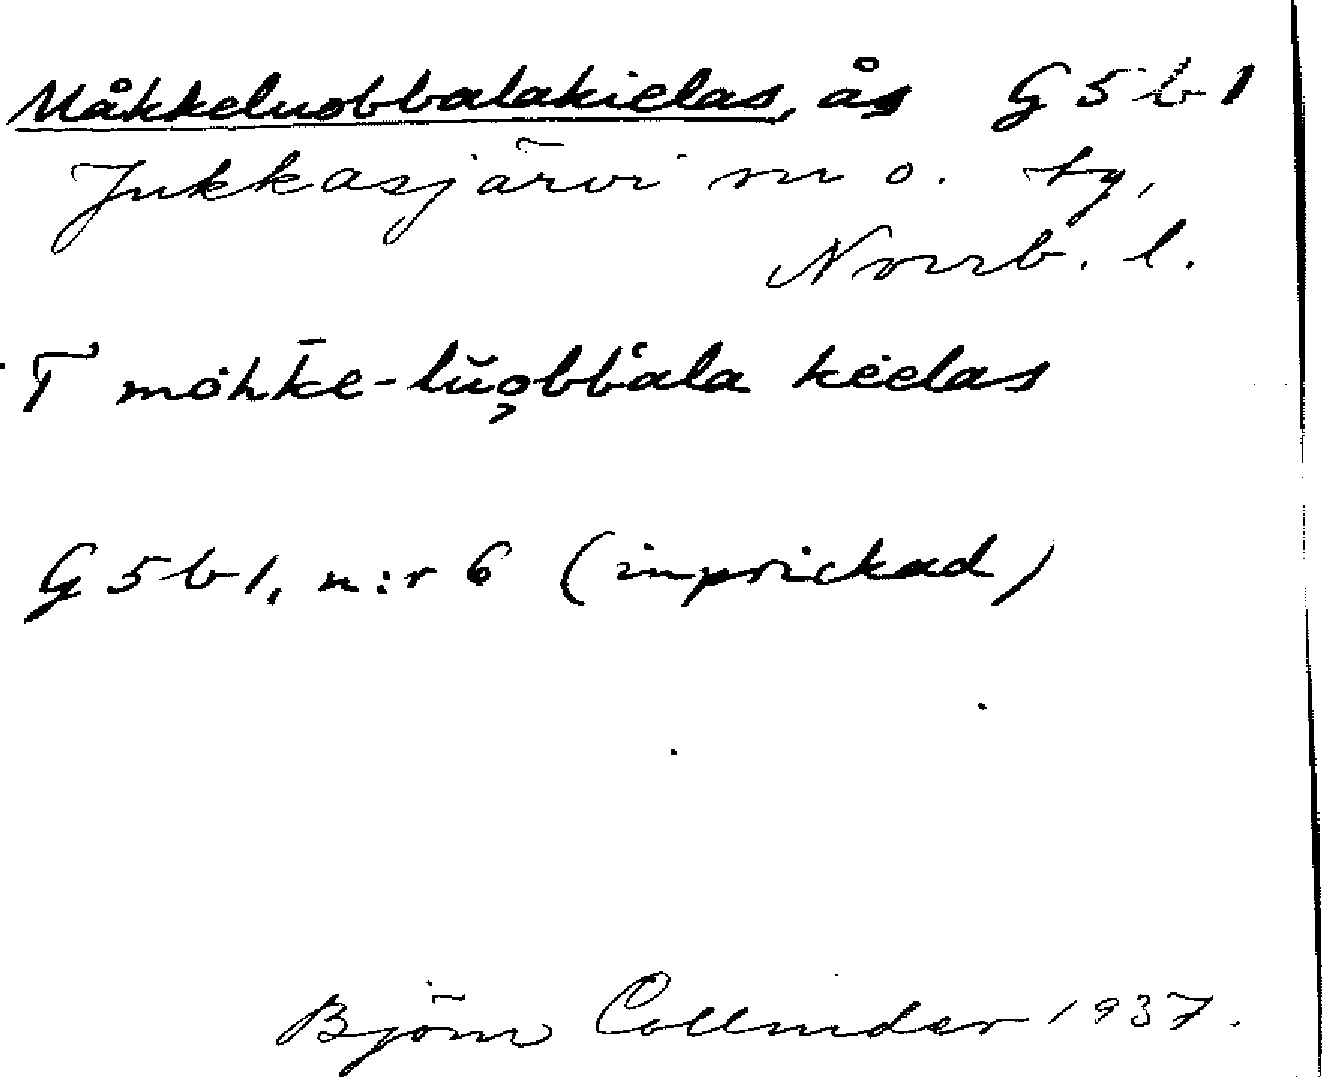 Måkkeluobbalakielas, ås G5b1
Jukkasjärvi sn o. tg,
Norrb. l.
T mohk̄e-lŭo̧bb'ala kėelas
G5b1, n:r 6 (inprickad)
Björn Collinder 1937.